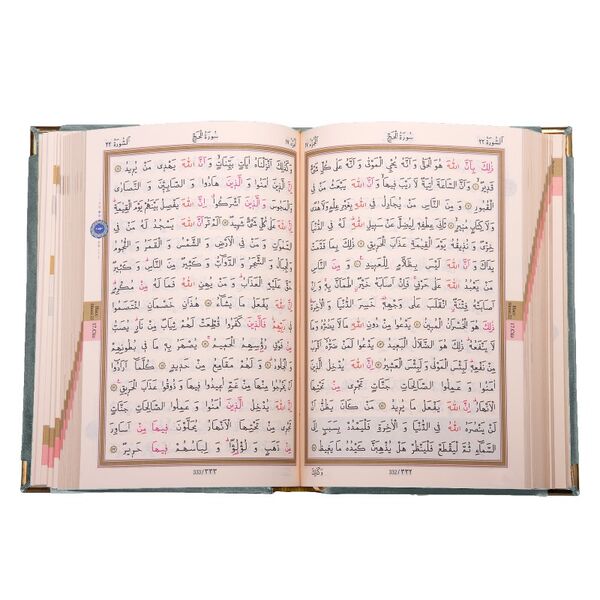 اَلسُّورَةُ ٢٢
سُورَةُ الْحَجِّ
اَلْجُزْءُ ١٧
ذٰلِكَ بِاَنَّ اللّٰهَ هُوَ الْحَقُّ وَاَنَّهُ يُحْيِ الْمَوْتٰى وَاَنَّهُ عَلٰى كُلِّ شَيْءٍ
قَدِيرٌ ۞ وَاَنَّ السَّاعَةَ اٰتِيَةٌ لَا رَيْبَ فِيهَا وَاَنَّ اللّٰهَ يَبْعَثُ مَنْ فِي
الْقُبُورِ ۞ وَمِنَ النَّاسِ مَنْ يُجَادِلُ فِي اللّٰهِ بِغَيْرِ عِلْمٍ وَلَا هُدًى
وَلَا كِتَابٍ مُنِيرٍ ۞ ثَانِيَ عِطْفِهِ لِيُضِلَّ عَنْ سَبِيلِ اللّٰهِ لَهُ فِي الدُّنْيَا
خِزْيٌ وَنُذِيقُهُ يَوْمَ الْقِيٰمَةِ عَذَابَ الْحَرِيقِ ۞ ذٰلِكَ بِمَا قَدَّمَتْ
يَدَاكَ وَاَنَّ اللّٰهَ لَيْسَ بِظَلَّامٍ لِلْعَبِيدِ ۞ وَمِنَ النَّاسِ
مَنْ يَعْبُدُ اللّٰهَ عَلٰى حَرْفٍ فَاِنْ اَصَابَهُ خَيْرٌ اطْمَاَنَّ بِهِ وَاِنْ
اَصَابَتْهُ فِتْنَةٌ انْقَلَبَ عَلٰى وَجْهِهِ خَسِرَ الدُّنْيَا وَالْاٰخِرَةَ
ذٰلِكَ هُوَ الْخُسْرَانُ الْمُبِينُ ۞ يَدْعُوا مِنْ دُونِ اللّٰهِ مَا لَا يَضُرُّهُ وَمَا
لَا يَنْفَعُهُ ذٰلِكَ هُوَ الضَّلَالُ الْبَعِيدُ ۞ يَدْعُوا لَمَنْ ضَرُّهُ اَقْرَبُ
مِنْ نَفْعِهِ لَبِئْسَ الْمَوْلٰى وَلَبِئْسَ الْعَشِيرُ ۞ اِنَّ اللّٰهَ يُدْخِلُ
الَّذِينَ اٰمَنُوا وَعَمِلُوا الصَّالِحَاتِ جَنَّاتٍ تَجْرِي مِنْ تَحْتِهَا
الْاَنْهَارُ اِنَّ اللّٰهَ يَفْعَلُ مَا يُرِيدُ ۞ مَنْ كَانَ يَظُنُّ اَنْ
لَنْ يَنْصُرَهُ اللّٰهُ فِي الدُّنْيَا وَالْاٰخِرَةِ فَلْيَمْدُدْ بِسَبَبٍ اِلَى
السَّمَاءِ ثُمَّ لْيَقْطَعْ فَلْيَنْظُرْ هَلْ يُذْهِبَنَّ كَيْدُهُ مَا يَغِيظُ ۞
332 / ٣٣٢
اَلسُّورَةُ ٢٢
سُورَةُ الْحَجِّ
وَكَذٰلِكَ اَنْزَلْنَاهُ اٰيَاتٍ بَيِّنَاتٍ وَاَنَّ اللّٰهَ يَهْدِي مَنْ يُرِيدُ ۞
اِنَّ الَّذِينَ اٰمَنُوا وَالَّذِينَ هَادُوا وَالصَّابِئِينَ وَالنَّصَارٰى
وَالْمَجُوسَ وَالَّذِينَ اَشْرَكُوا اِنَّ اللّٰهَ يَفْصِلُ بَيْنَهُمْ يَوْمَ الْقِيٰمَةِ
اِنَّ اللّٰهَ عَلٰى كُلِّ شَيْءٍ شَهِيدٌ ۞ اَلَمْ تَرَ اَنَّ اللّٰهَ يَسْجُدُ لَهُ مَنْ فِي
السَّمٰوَاتِ وَمَنْ فِي الْاَرْضِ وَالشَّمْسُ وَالْقَمَرُ وَالنُّجُومُ
وَالْجِبَالُ وَالشَّجَرُ وَالدَّوَابُّ وَكَثِيرٌ مِنَ النَّاسِ وَكَثِيرٌ
حَقَّ عَلَيْهِ الْعَذَابُ وَمَنْ يُهِنِ اللّٰهُ فَمَا لَهُ مِنْ مُكْرِمٍ
اِنَّ اللّٰهَ يَفْعَلُ مَا يَشَاءُ ۞ هٰذَانِ خَصْمَانِ اخْتَصَمُوا
فِي رَبِّهِمْ فَالَّذِينَ كَفَرُوا قُطِّعَتْ لَهُمْ ثِيَابٌ مِنْ نَارٍ يُصَبُّ
مِنْ فَوْقِ رُؤُسِهِمُ الْحَمِيمُ ۞ يُصْهَرُ بِهِ مَا فِي بُطُونِهِمْ
وَالْجُلُودُ ۞ وَلَهُمْ مَقَامِعُ مِنْ حَدِيدٍ ۞ كُلَّمَا اَرَادُوا
اَنْ يَخْرُجُوا مِنْهَا مِنْ غَمٍّ اُعِيدُوا فِيهَا وَذُوقُوا عَذَابَ الْحَرِيقِ ۞
اِنَّ اللّٰهَ يُدْخِلُ الَّذِينَ اٰمَنُوا وَعَمِلُوا الصَّالِحَاتِ جَنَّاتٍ
تَجْرِي مِنْ تَحْتِهَا الْاَنْهَارُ يُحَلَّوْنَ فِيهَا مِنْ اَسَاوِرَ
مِنْ ذَهَبٍ وَلُؤْلُؤًا وَلِبَاسُهُمْ فِيهَا حَرِيرٌ ۞
333 / ٣٣٣